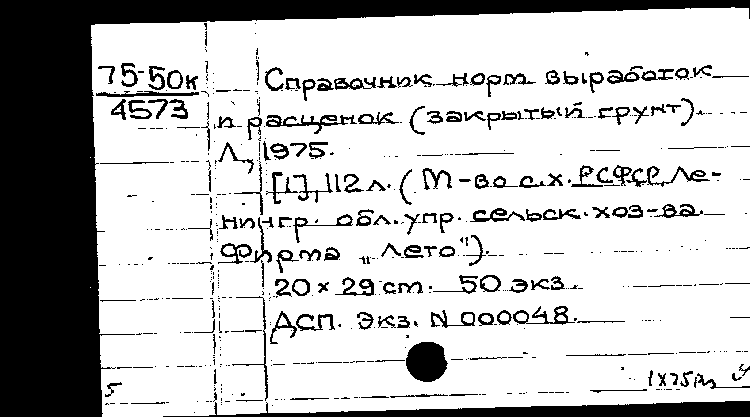 75-50к
4573
Справочник норм выработок
и расценок (закрытый грунт).
Л., 1975.
[1], 112 л. (М-во с.х. РСФСР, Ле-
нингр. обл. упр. сельск. хоз-ва.
Фирма „Лето").
20 × 29 cm. 50 экз.
ДСП. Экз. N 000048.
5